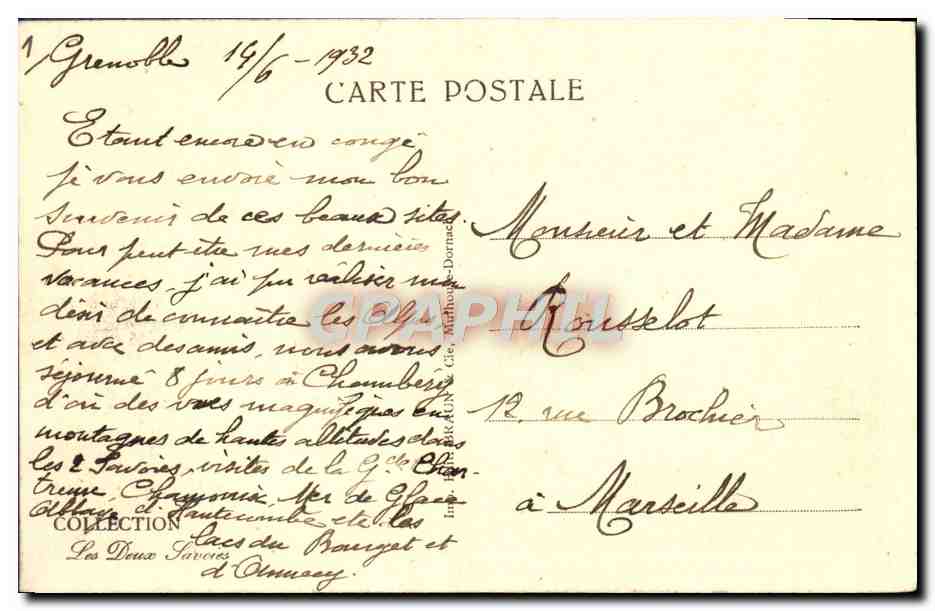 1/ Grenoble 14/6 - 1932
CARTE POSTALE
Etant encore en congé
je vous envoie mon bon
souvenir de ces beaux sites.
Pour peut être mes dernières
vacances, j'ai pu réaliser mon
désir de connaître les Alpes,
et avec des amis, nous avons
séjourné 8 jours à Chambéry
d'où des vues magnifiques en
montagnes de hautes altitudes dans
les 2 Savoies, visites de la Gde Char-
treuse, Chamonix, Mer de Glace
Abbaye d'Hautecombe etc les
lacs du Bourget et
d'Annecy.
COLLECTION
Les Deux Savoies
BRAUN & Cie, Mulhouse-Dornach
CPAPHIL
Monsieur et Madame
Rousselot
12 rue Brochier
à Marseille